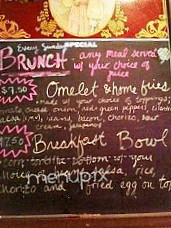 Every Sunday SPECIAL
BRUNCH - any meal served
w/ your choice of
juice
$7.50 Omelet & home fries
made w/ your choice of toppings:
cheese onion, red green peppers,
beans, bacon, chorizo, sour
cream, jalapenos
7.50 Breakfast Bowl
corn tortilla bottom w/ your
rice,
chorizo and fried egg on top
menupix